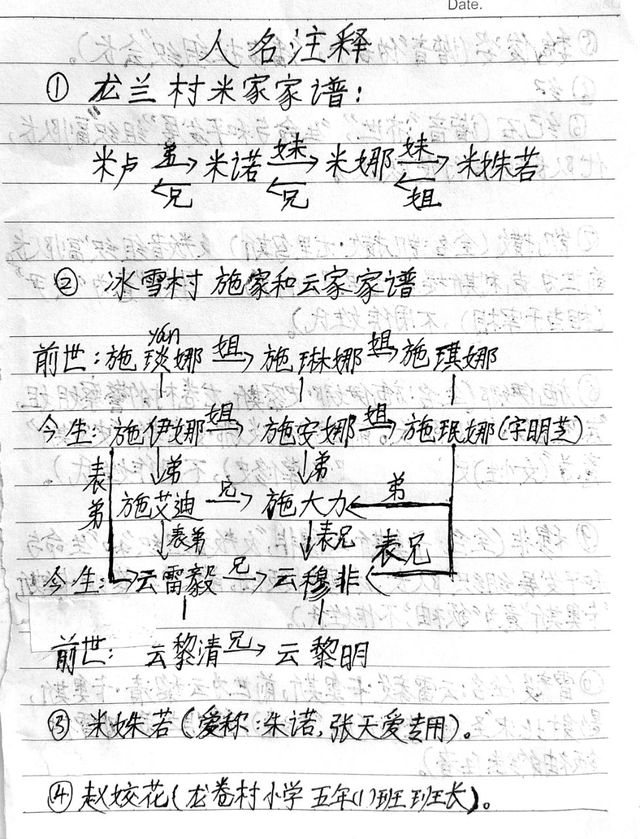 Date.
人名注释
① 龙兰村米家家谱：
米卢 弟 米诺 妹 米娜 妹 米姝若
兄 兄 姐
② 冰雪村 施家和云家家谱
yǎn
前世：施琰娜 姐 施琳娜 姐 施琪娜
今生：施伊娜 姐 施安娜 姐 施珉娜(字明芝)
表弟 弟 弟 弟
施艾迪 兄 施大力
表弟 表兄 表兄
今生：云雷毅 兄 云穆非
前世：云黎清 兄 云黎明
③ 米姝若（爱称：朱诺，张天爱专用）。
④ 赵姣花（龙卷村小学五年(1)班班长）。